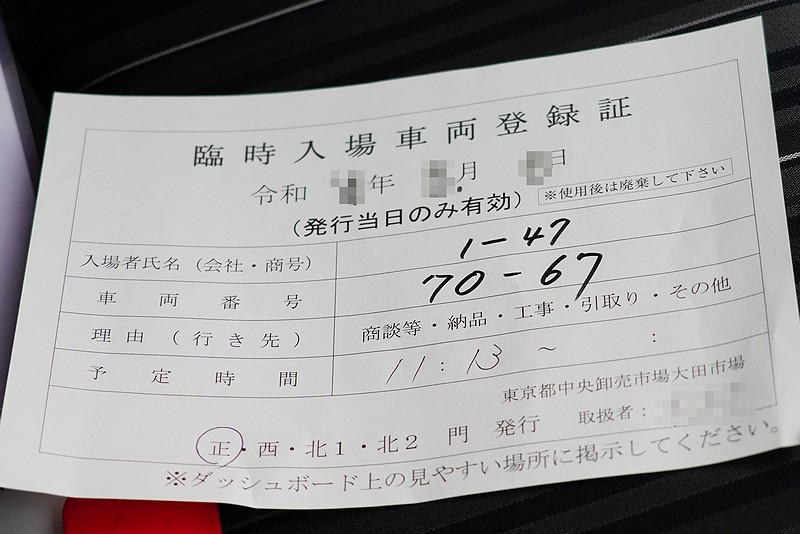 臨時入場車両登録証
令和 年 月 日
(発行当日のみ有効) ※使用後は廃棄して下さい
入場者氏名(会社・商号) 1-47
車両番号 70-67
理由(行き先) 商談等・納品・工事・引取り・その他
予定時間 11:13 ~ :
東京都中央卸売市場大田市場
正・西・北1・北2 門 発行 取扱者:
※ダッシュボード上の見やすい場所に掲示してください。